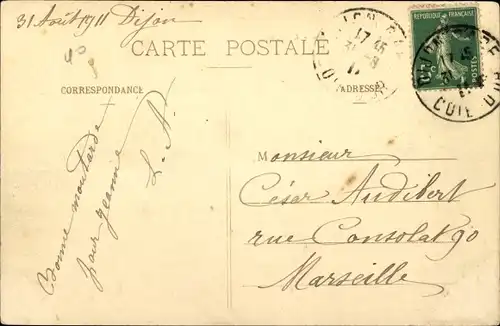 31 Août 1911 Dijon
CARTE POSTALE
CORRESPONDANCE
ADRESSE
Bonne moutarde
pour Jeanne
L. A.
Monsieur
César Audibert
rue Consolat 90
Marseille
RÉPUBLIQUE FRANÇAISE
POSTES
DIJON GARE
17 45
31 -8
11
COTE D'OR